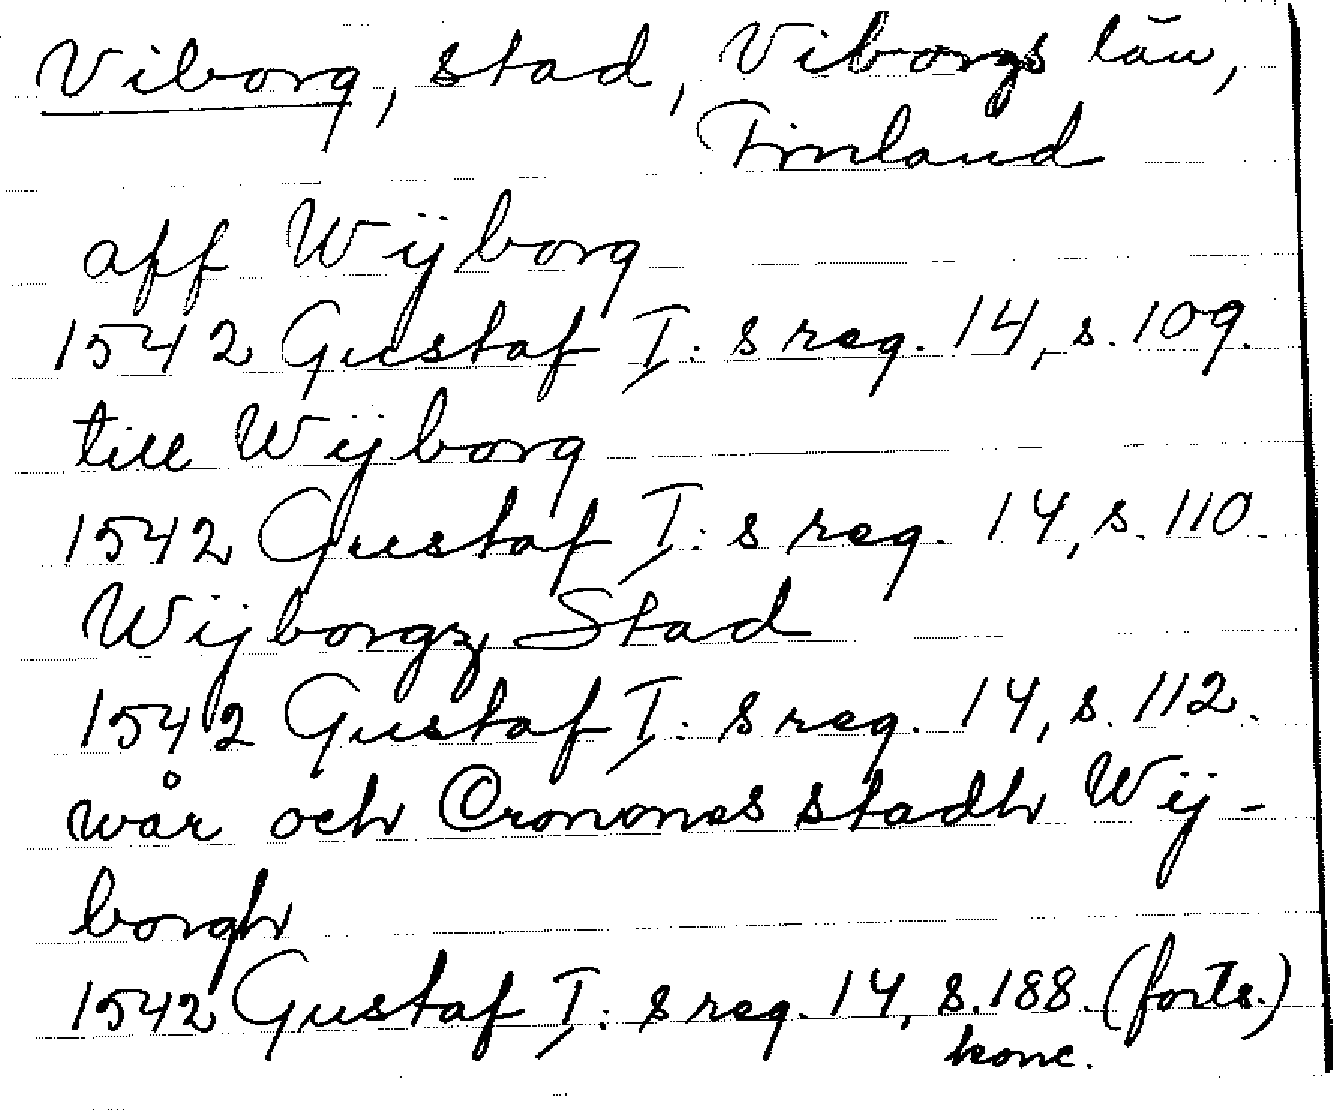 Viborg, stad, Viborgs län,
Finland
aff Wijborg
1542 Gustaf I:s reg. 14, s. 109.
till Wijborg
1542 Gustaf I:s reg. 14, s. 110.
Wijborgz Stad
1542 Gustaf I:s reg. 14, s. 112.
wår och Cronones stadh Wij-
borgh
1542 Gustaf I:s reg. 14, s. 188. (forts.)
konc.